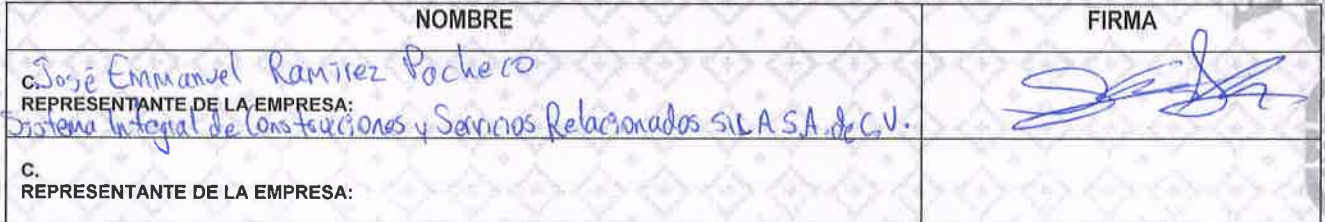 NOMBRE
FIRMA
C. José Emmanuel Ramírez Pacheco
REPRESENTANTE DE LA EMPRESA:
Sistema Integral de Construcciones y Servicios Relacionados SILA S.A. de C.V.
C.
REPRESENTANTE DE LA EMPRESA: